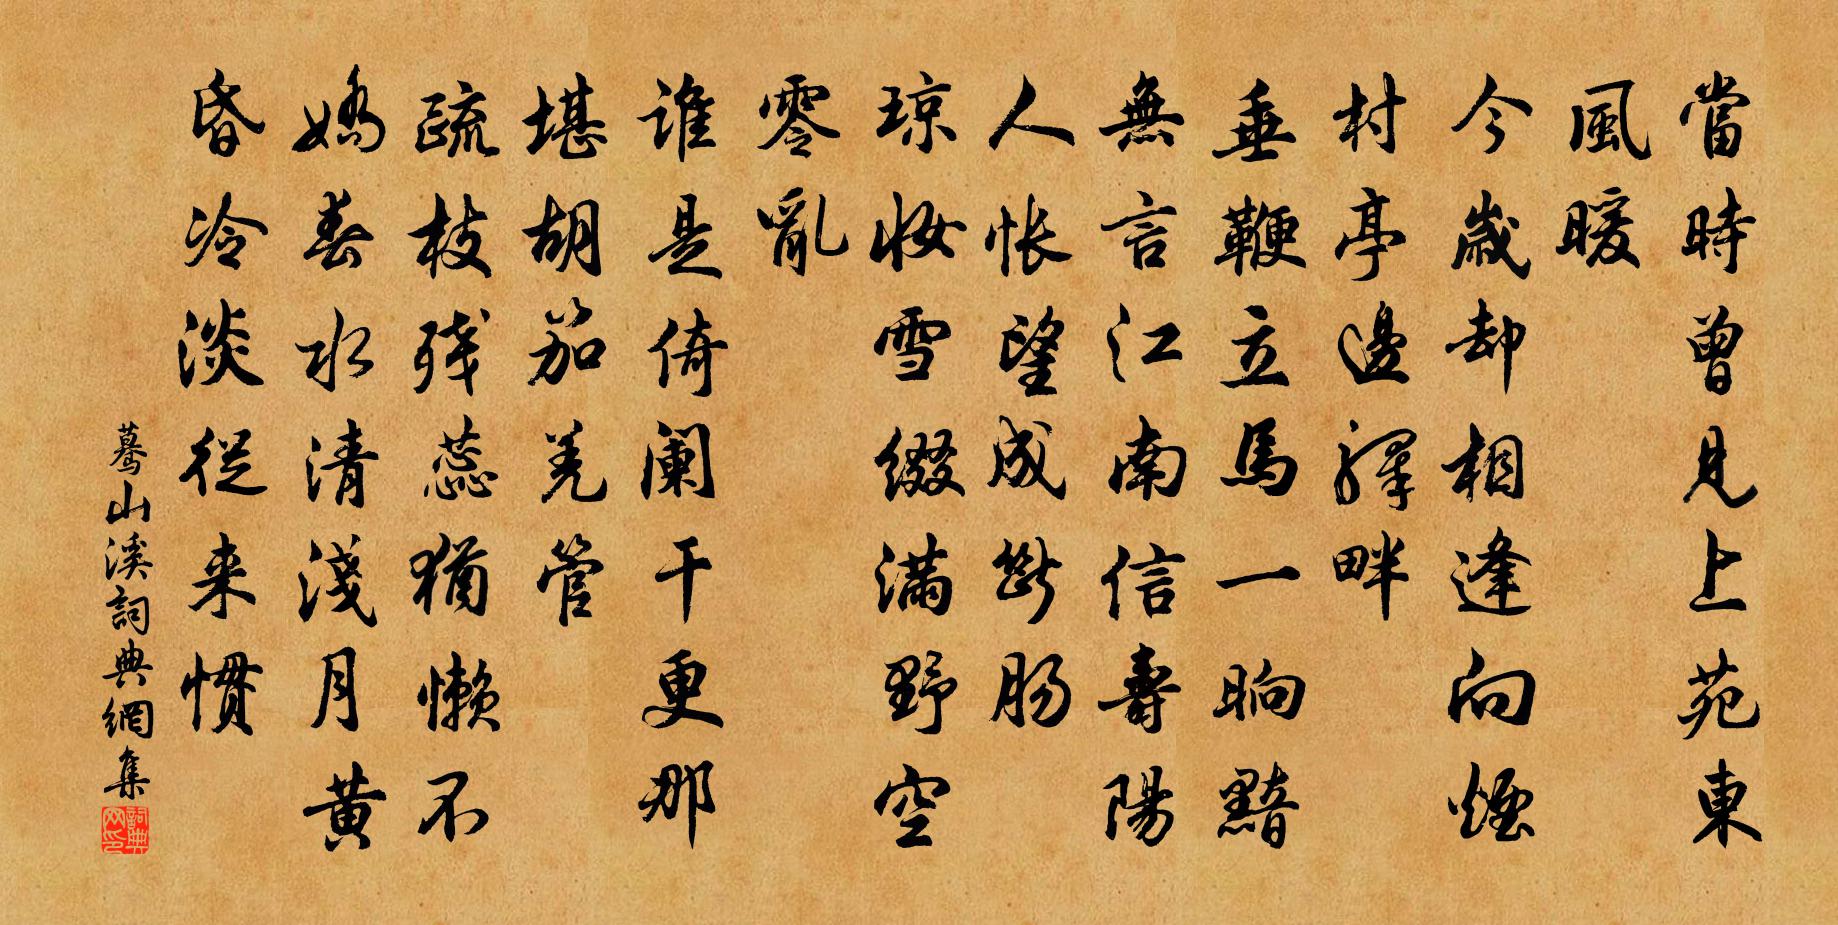 當時曾見上苑東
風暖
今歲却相逢向煙
村亭邊驛畔
垂鞭立馬一晌黯
無言江南信壽陽
人怅望成斷肠
琼妆雪缀满野空
零亂
谁是倚阑干更那
堪胡笳羌管
疏枝残蕊猶懒不
嬌春水清淺月黄
昏冷淡從来慣
驀山溪詞典網集
詞典网印